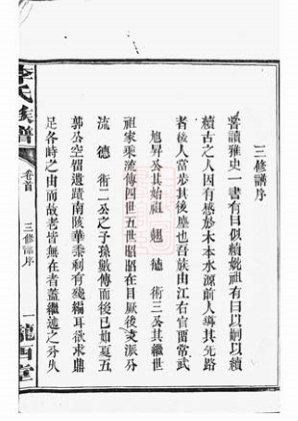 三修譜序
嘗讀雅史一書有曰似續妣祖有曰以嗣以續
續古之人因有感於木本水源前人導其先路
者後人當步其後塵也吾族由江右官而常武
旭昇公其始祖 翹 德 術三公其繼世
祖家乘流傳四世五世昭昭在目厥後支派分
流 德 術二公之子孫數傳而後已如夏五
郭公空留遺蹟南陔華黍剩有殘編耳欲求聯
足各時之由而故老皆無在者蓋繼述之分久
李氏族譜
卷首
三修譜序
一
隴西堂